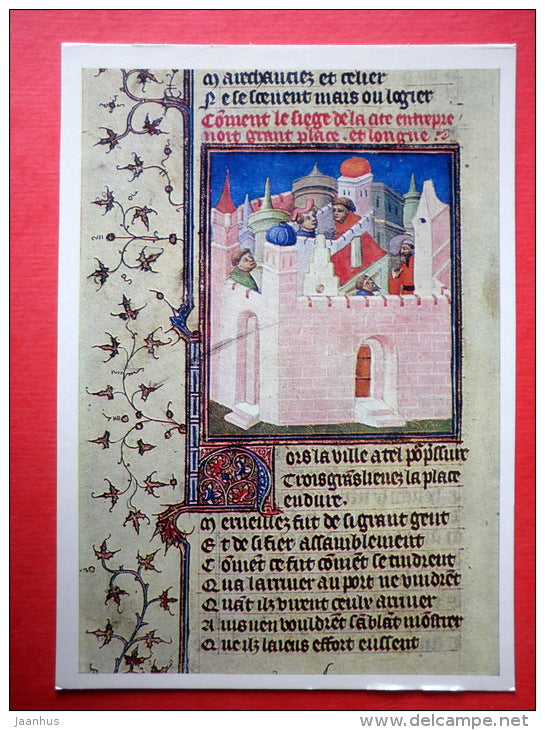 M airchanciez et celier
N e se scevent mais ou logier
Cōment le siege de la cite entrepre
noit grant place . et longue
ors la ville a tel
Trois grans lieuez la place
endure.
M erueillez fut de si grant gent
E t de si fier assamblement
C ōment ce fut cōment se tindrent
Q ua larriuer au port ne vindrēt
Q uāt ilz virent ceulz arriuer
A uis uen vouldrēt sāblāt mōstrer
Q ue ilz laiens effort eussent
Jaanhus
www.delcampe.net